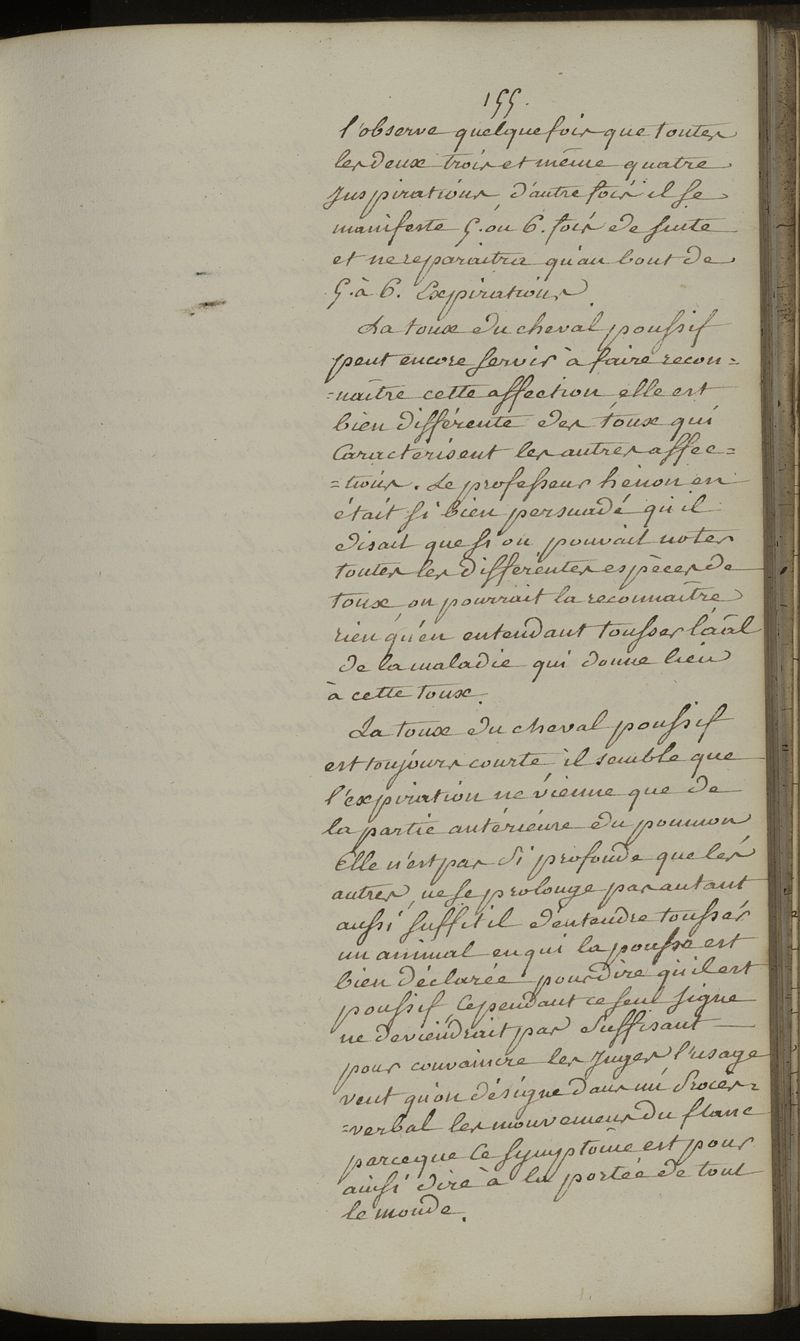 155.
l'observe quelquefois que toutes
les deux trois et même quatre
Juspirations, d'autre fois il se
manifeste 5. ou 6. fois de suite
et ne reparaitra qu'au bout de
5. à 6. Expirations.
La toux du cheval poussif
peut encore servir à faire recon=
=naître cette affection elle est
bien différente des toux qui
Caracterisent les autres affec=
=tions. Le professeur hénon en
était si bien persuadé qu'il
disait que si on pouvait noter
toutes les différentes espèces de
toux on pourrait la reconnaître
rien qu'en entendant tousser l'aāl
de la maladie qui donne lieu
à cette toux.
La toux du cheval poussif
est toujours courte, il semble que
l'expiration ne vienne que de
la partie antérieure du poumon
Elle n'est pas si profonde que les
autres, ne se prolonge pas autant
aussi suffit il d'entendre tousser
un animal en qui la pousse est
bien déclarée pour dire qu'il est
poussif, Cependant ce seul signe
ne deviendrait pas suffisant
pour convaincre les Juges l'usage
veut qu'on désigne dans un Procès=
=verbal les mouvemens du flanc
parceque ce symptôme est pour
ainsi dire à la portée de tout
le monde.